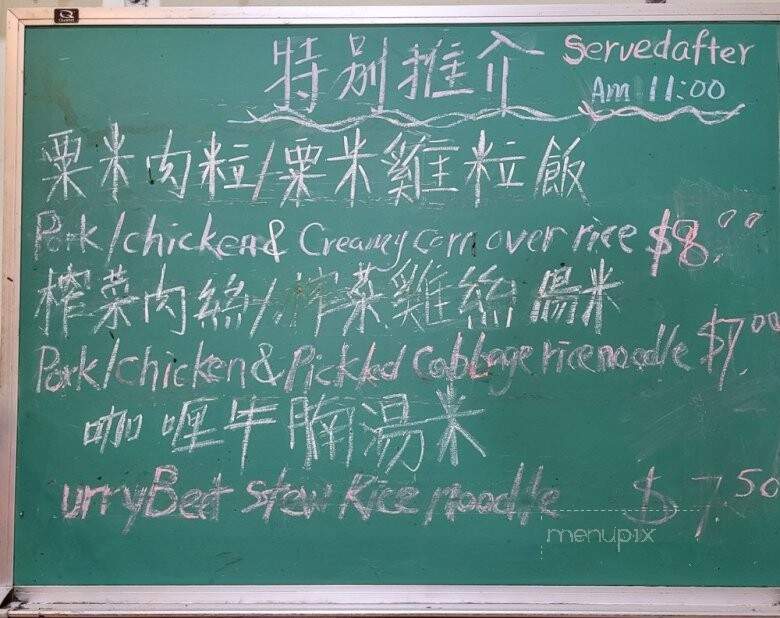 Quartet
特别推介 Served after
Am 11:00
粟米肉粒/粟米雞粒飯
Pork/chicken & Creamy corn over rice $8.00
榨菜肉絲/榨菜雞絲湯米
Pork/chicken & Pickled Cabbage rice noodle $7.00
咖喱牛腩湯米
urry Beef Stew Rice noodle $7.50
menupix